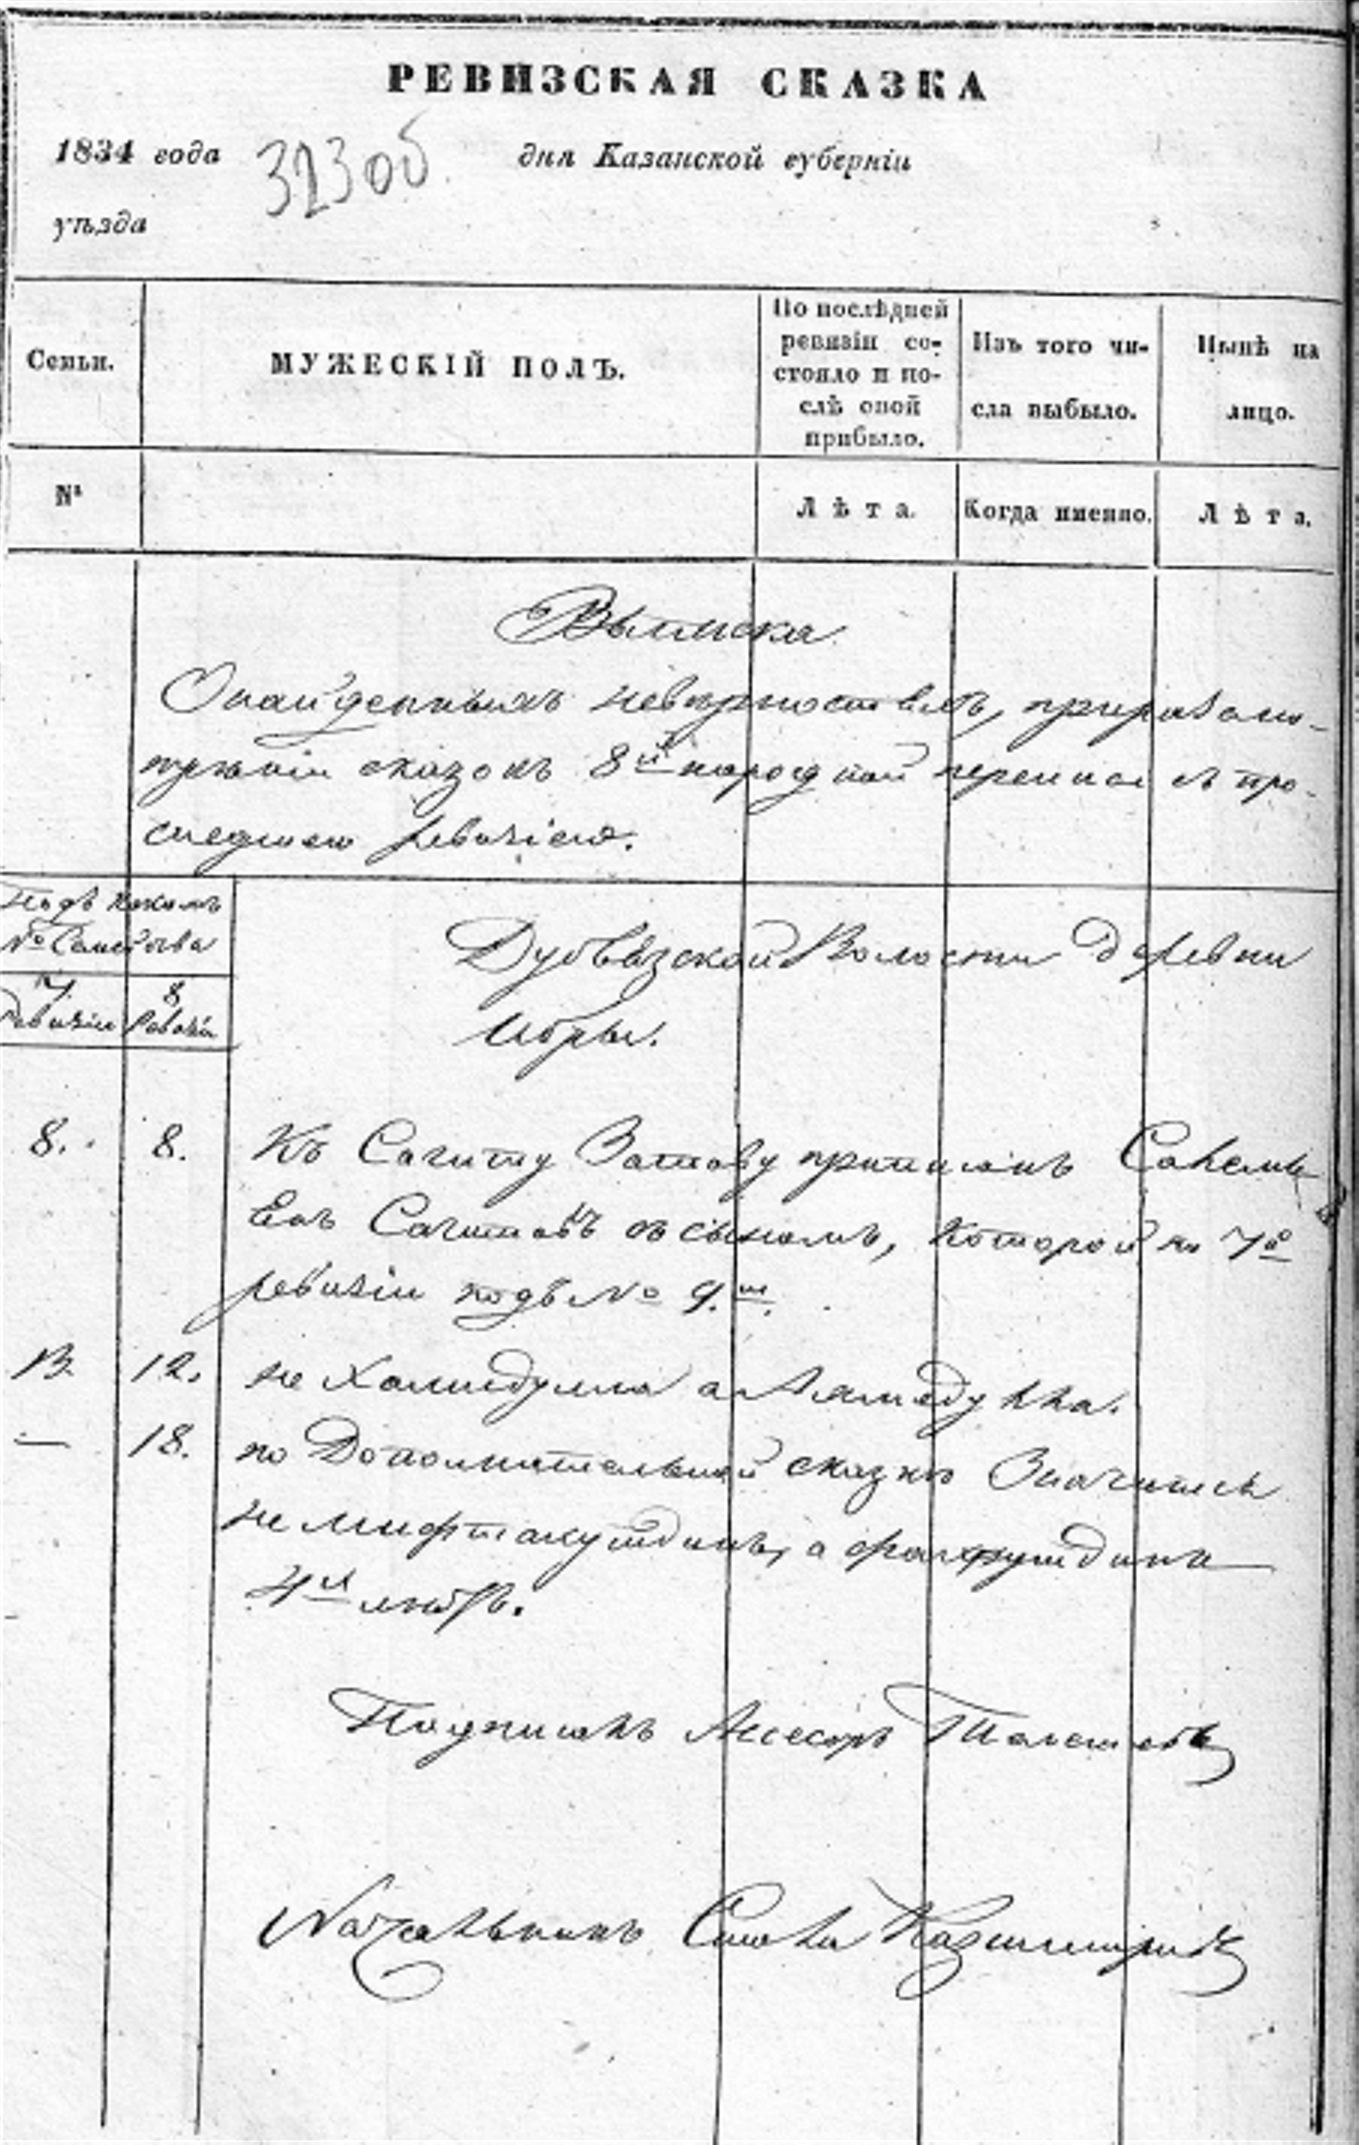 РЕВИЗСКАЯ СКАЗКА
1834 года
323об
дня Казанской губерніи
уѣзда
Семьи.
МУЖЕСКІЙ ПОЛЪ.
По послѣдней
ревизіи со-
стояло и по-
слѣ оной
прибыло.
Изъ того чи-
сла выбыло.
Нынѣ на
лицо.
№
Лѣта.
Когда именно.
Лѣта.
Выписка
О найденныхъ невѣрностяхъ, при разсмо-
трѣніи сказокъ 8й народной переписи съ про-
шедшею ревизіею.
Подъ какимъ
№ Семейства
7 Ревизіи
8 Ревизіи
Дубъязской Волости деревни
Иоры.
8. 8. Къ Сагиту приписанъ
Сагитовъ съ сыномъ, которой по 7й
ревизіи подъ № 9.м.
13. 12. не Халитдулла а
— 18. по Дополнительной сказкѣ Значится
не Мифтахутдинъ, а Фахрутдинъ
4й
Подписалъ Асесоръ
Начальникъ Стола